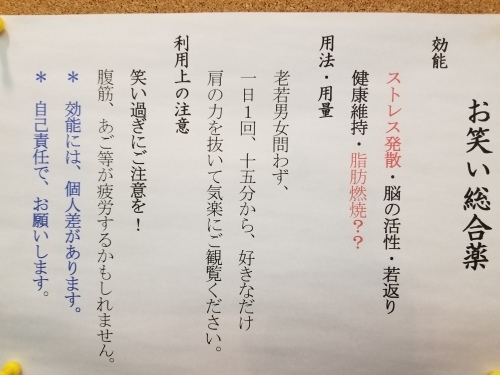 お笑い総合薬
効能
ストレス発散・脳の活性・若返り
健康維持・脂肪燃焼？？
用法・用量
老若男女問わず、
一日１回、十五分から、好きなだけ
肩の力を抜いて気楽にご観覧ください。
利用上の注意
笑い過ぎにご注意を！
腹筋、あご等が疲労するかもしれません。
＊　効能には、個人差があります。
＊　自己責任で、お願いします。